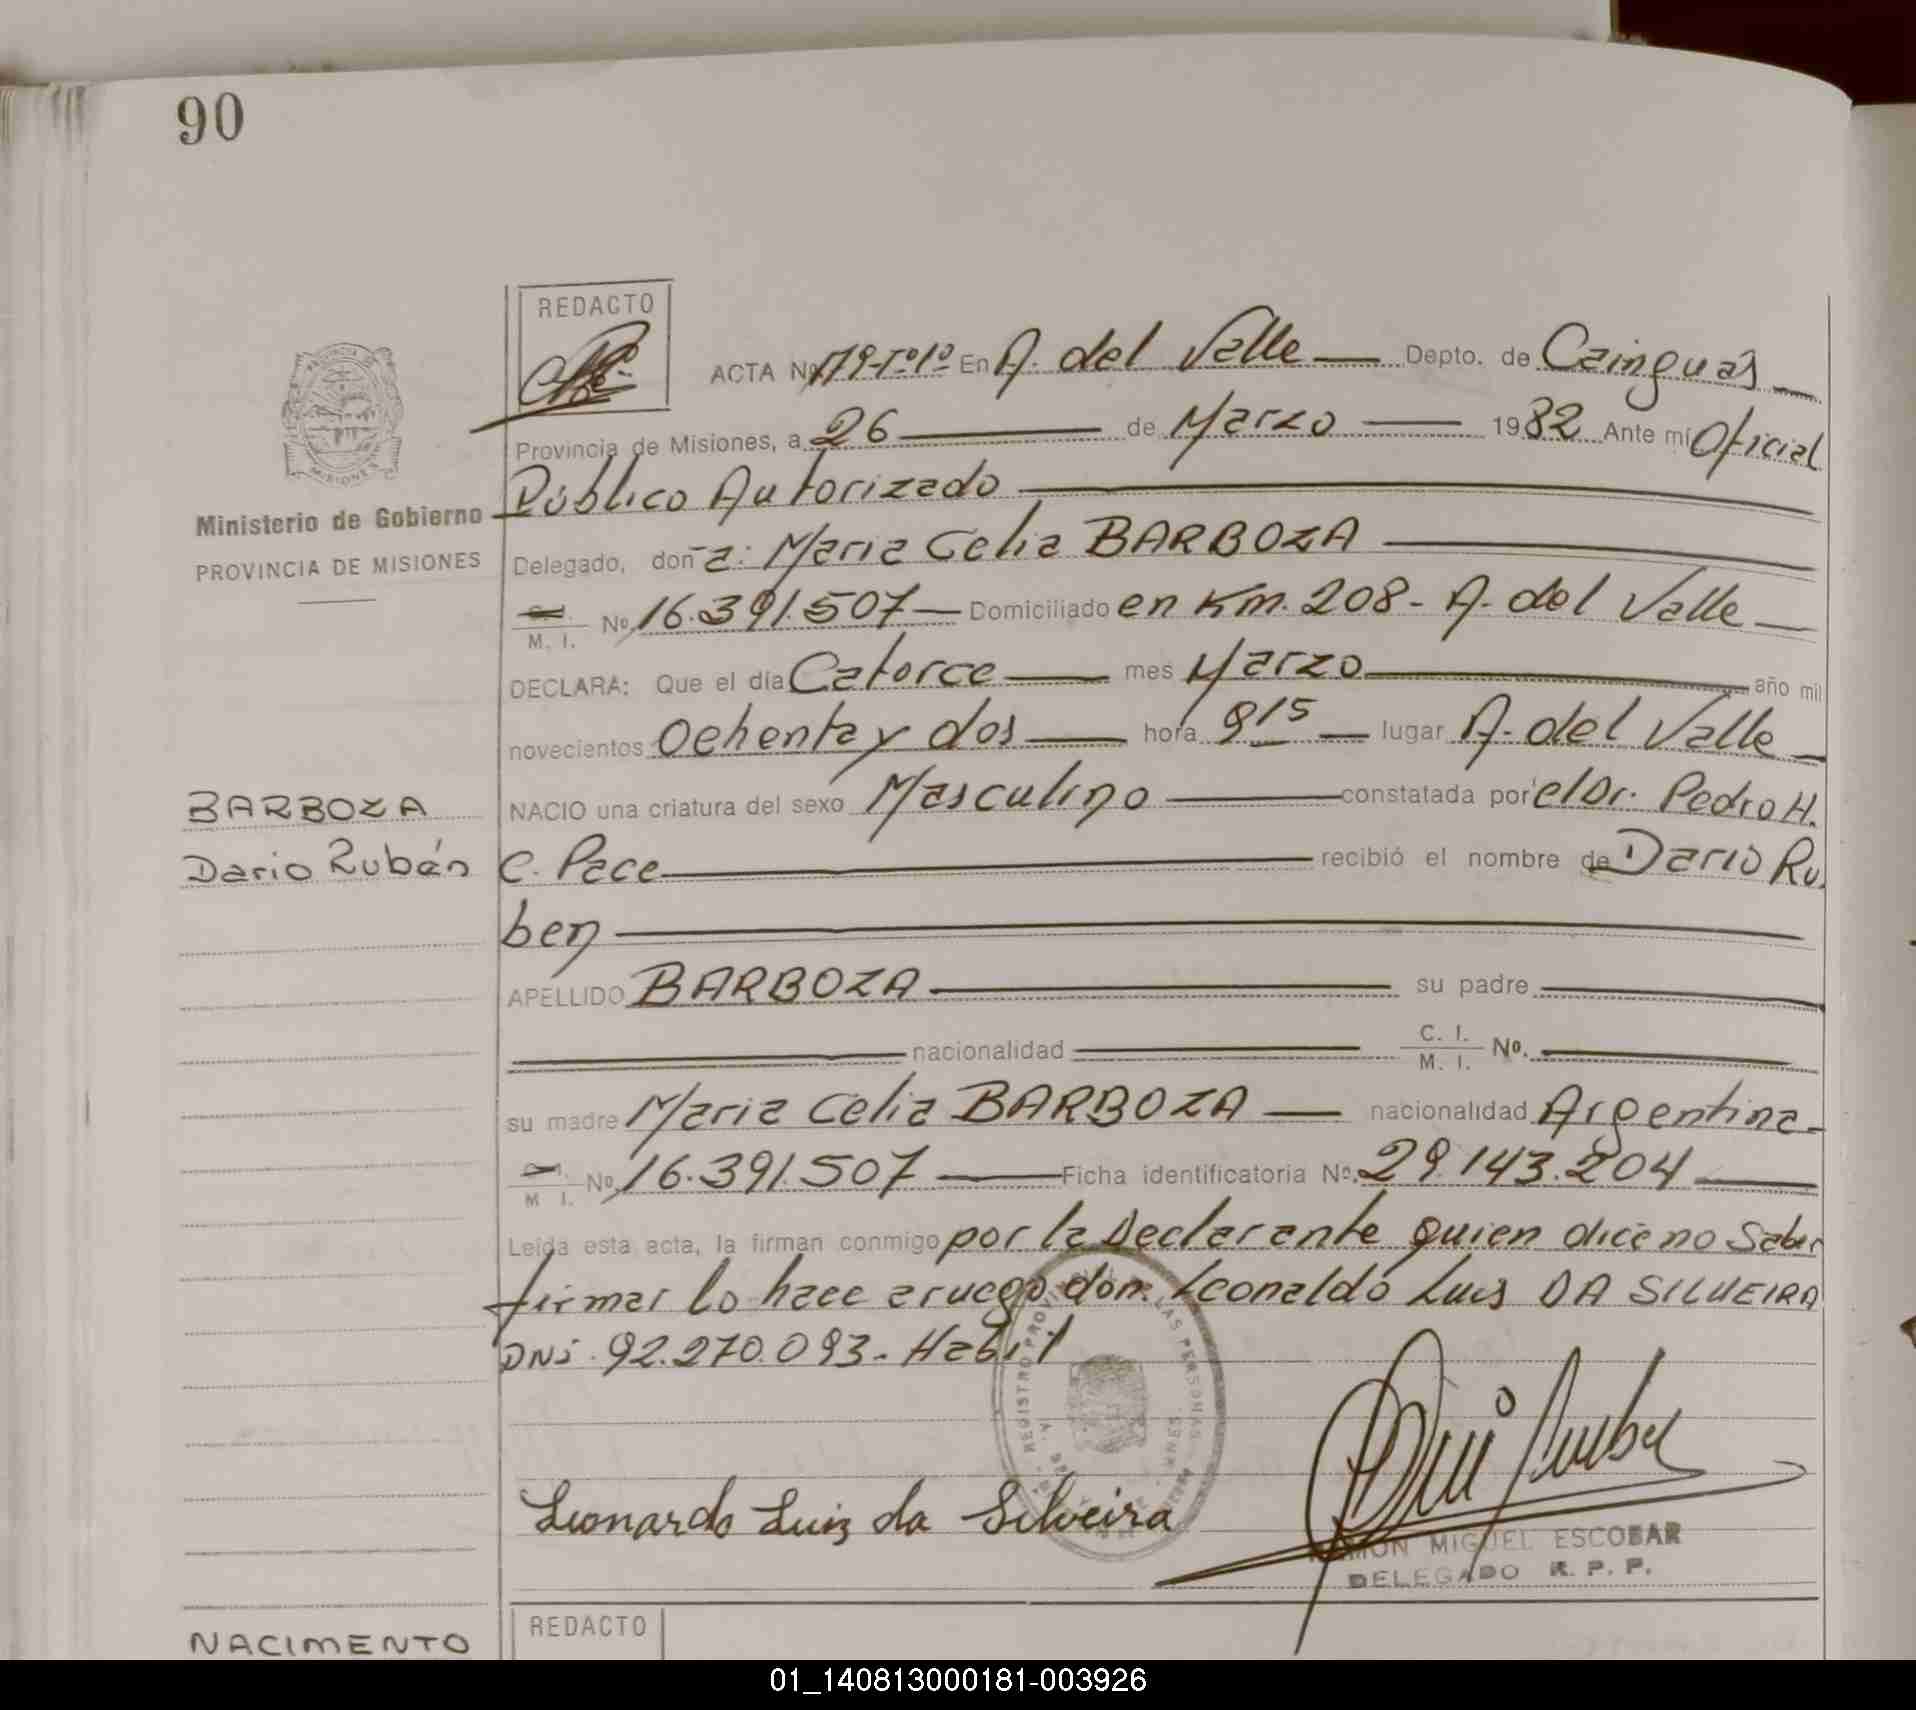 90
REDACTO
ACTA Nº 179-Tº1º En A. del Valle Depto. de Cainguás
Provincia de Misiones, a 26 de Marzo 1982 Ante mí Oficial
Público Autorizado
Ministerio de Gobierno
PROVINCIA DE MISIONES
Delegado, doña: Maria Celia BARBOZA
M. I. Nº 16.391.507 Domiciliado en Km. 208- A. del Valle
DECLARA: Que el día Catorce mes Marzo año mil
novecientos Ochenta y dos hora 9 15 lugar A. del Valle
BARBOZA
Dario Rubén
NACIO una criatura del sexo Masculino constatada por el Dr. Pedro H.
C. Pace recibió el nombre de Dario Ru
ben
APELLIDO BARBOZA su padre
nacionalidad C. I. M. I. Nº.
su madre Maria Celia BARBOZA nacionalidad Argentina-
M I. Nº 16.391.507 Ficha identificatoria Nº. 29.143.204
Leída esta acta, la firman conmigo por la Declarante quien dice no Saber
firmar lo hace a ruego don. Leonaldo Luis DA SILVEIRA
DNi. 92.270.093- Habil
REGISTRO PROVINCIAL LAS PERSONAS
Leonardo Luiz da Silveira
RAMON MIGUEL ESCOBAR
DELEGADO R. P. P.
NACIMENTO
REDACTO
01_140813000181-003926